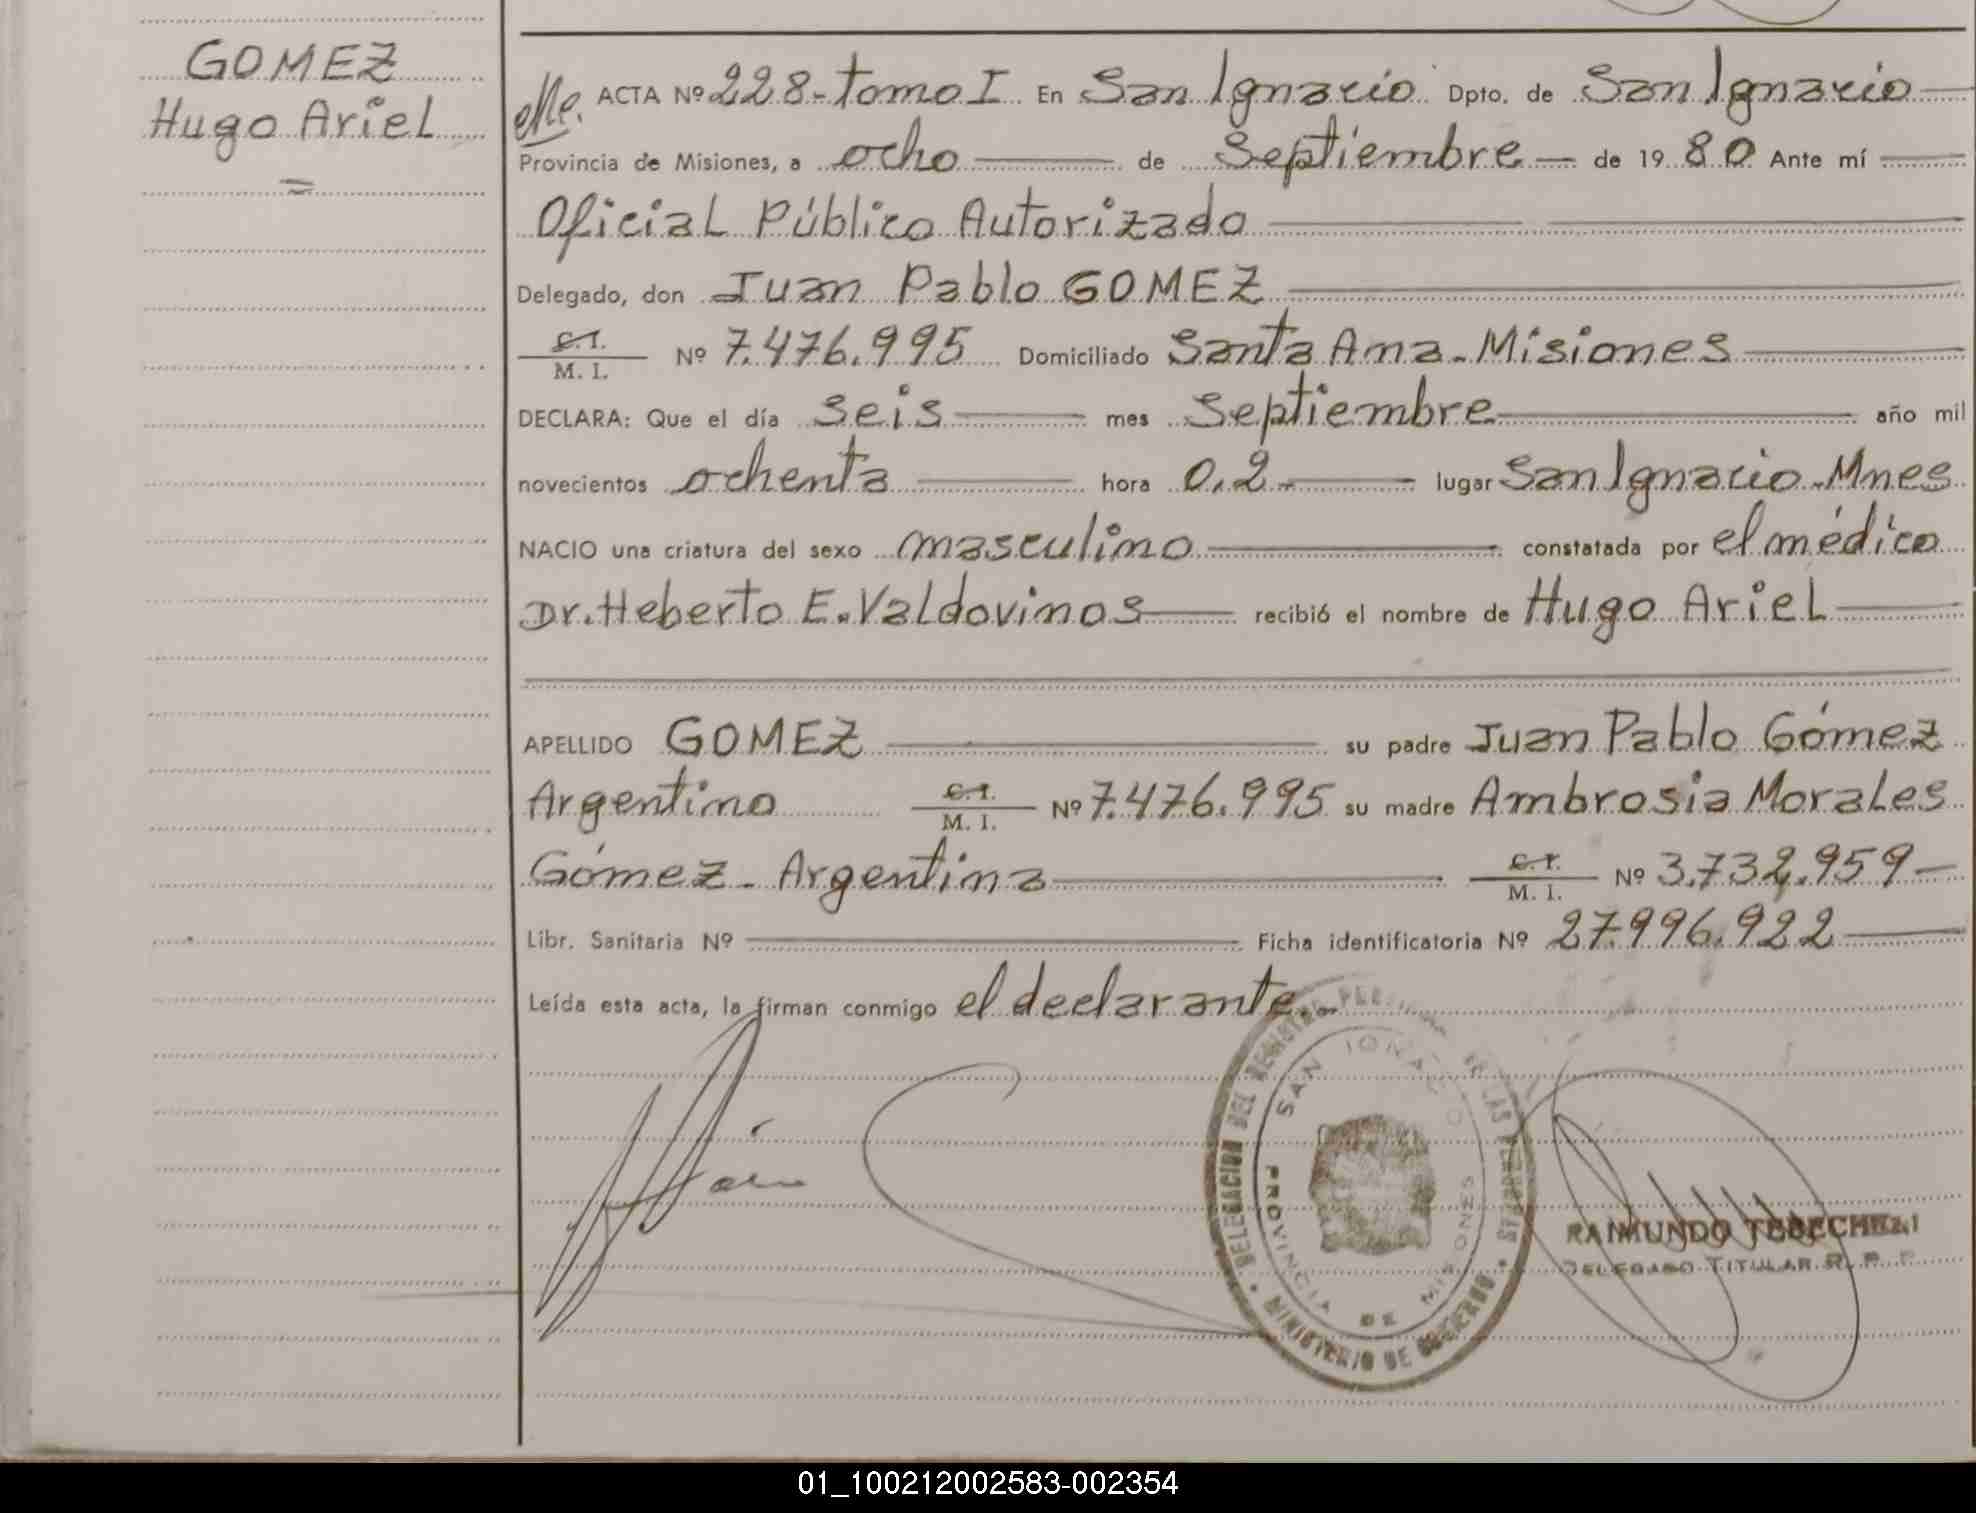 GOMEZ
Hugo Ariel
=
ACTA Nº 228-tomo I En San Ignacio Dpto. de San Ignacio
Provincia de Misiones, a ocho de Septiembre de 1980 Ante mí
Oficial Público Autorizado
Delegado, don Juan Pablo GOMEZ
C.I.
M. I. Nº 7.476.995 Domiciliado Santa Ana-Misiones
DECLARA: Que el día seis mes Septiembre año mil
novecientos ochenta hora 0,2- lugar San Ignacio-Mnes
NACIO una criatura del sexo masculino constatada por el médico
Dr. Heberto E. Valdovinos recibió el nombre de Hugo Ariel
APELLIDO GOMEZ su padre Juan Pablo Gómez
Argentino C.I. M. I. Nº 7.476.995 su madre Ambrosia Morales
Gómez - Argentina C.I. M. I. Nº 3.732.959-
Libr. Sanitaria Nº Ficha identificatoria Nº 27.996.922
Leída esta acta, la firman conmigo el declarante.-
DELEGACION DEL REGISTRO DE LAS PERSONAS
SAN IGNACIO
PROVINCIA DE MISIONES
MINISTERIO DE GOBIERNO
RAIMUNDO
DELEGADO TITULAR R. P. P.
01_100212002583-002354